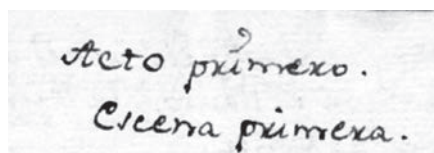 Acto primero.
Escena primera.